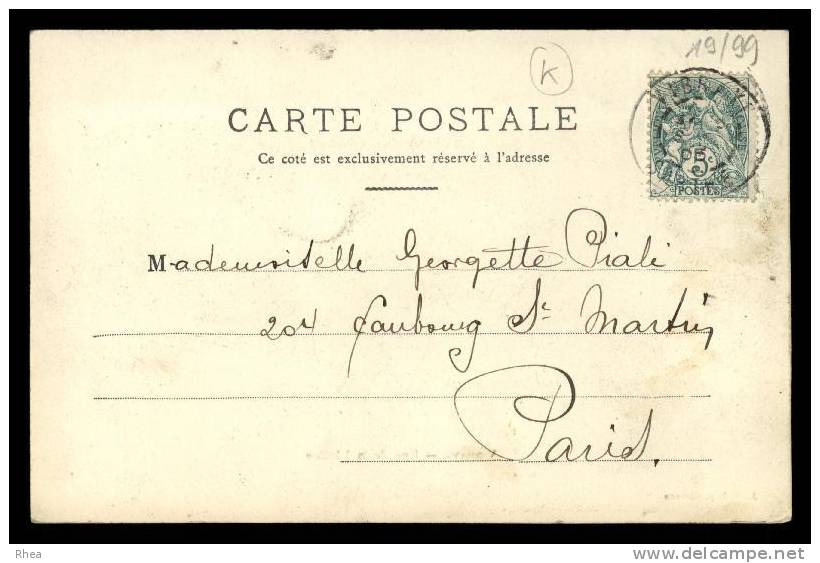 19/99
K
CARTE POSTALE
Ce coté est exclusivement réservé à l'adresse
5
POSTES
Mademoiselle Georgette Piali
204 faubourg St Martin
Paris.
Rhea
www.delcampe.net